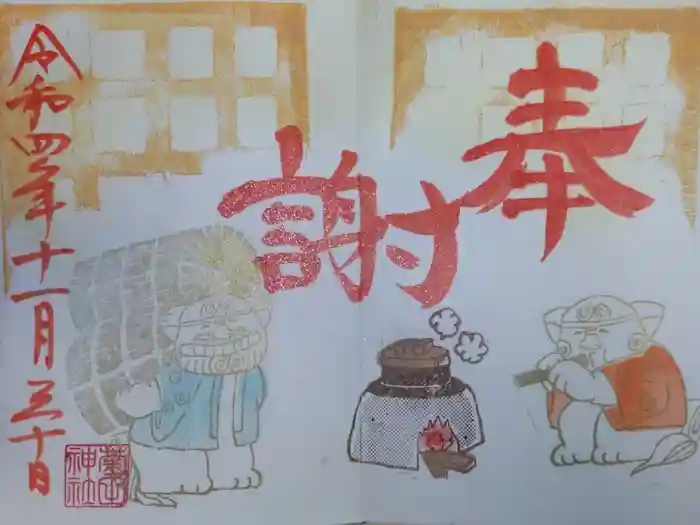 奉
謝
令和四年十一月三十日
神社